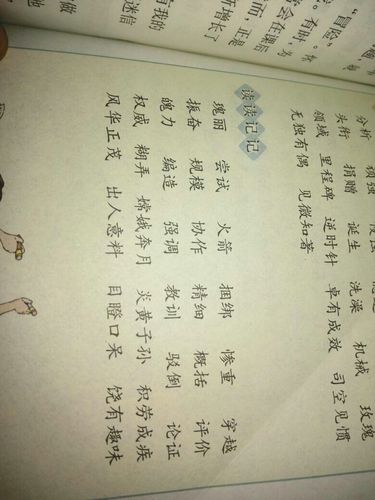 "冒险"。
有时，
会在课后
面，正是
增长了
有我的
迷信
做
他
分析 顽强
头衔 捐赠 诞生 洗澡 机械 玫瑰
领域 里程碑 逆时针 卓有成效 司空见惯
无独有偶 见微知著
读读记记
瑰丽 尝试 火箭 捆绑 惨重 穿越
振奋 规模 协作 精细 概括 评价
魄力 编造 强调 教训 驳倒 论证
权威 糊弄 嫦娥奔月 炎黄子孙 积劳成疾
风华正茂 出人意料 目瞪口呆 饶有趣味